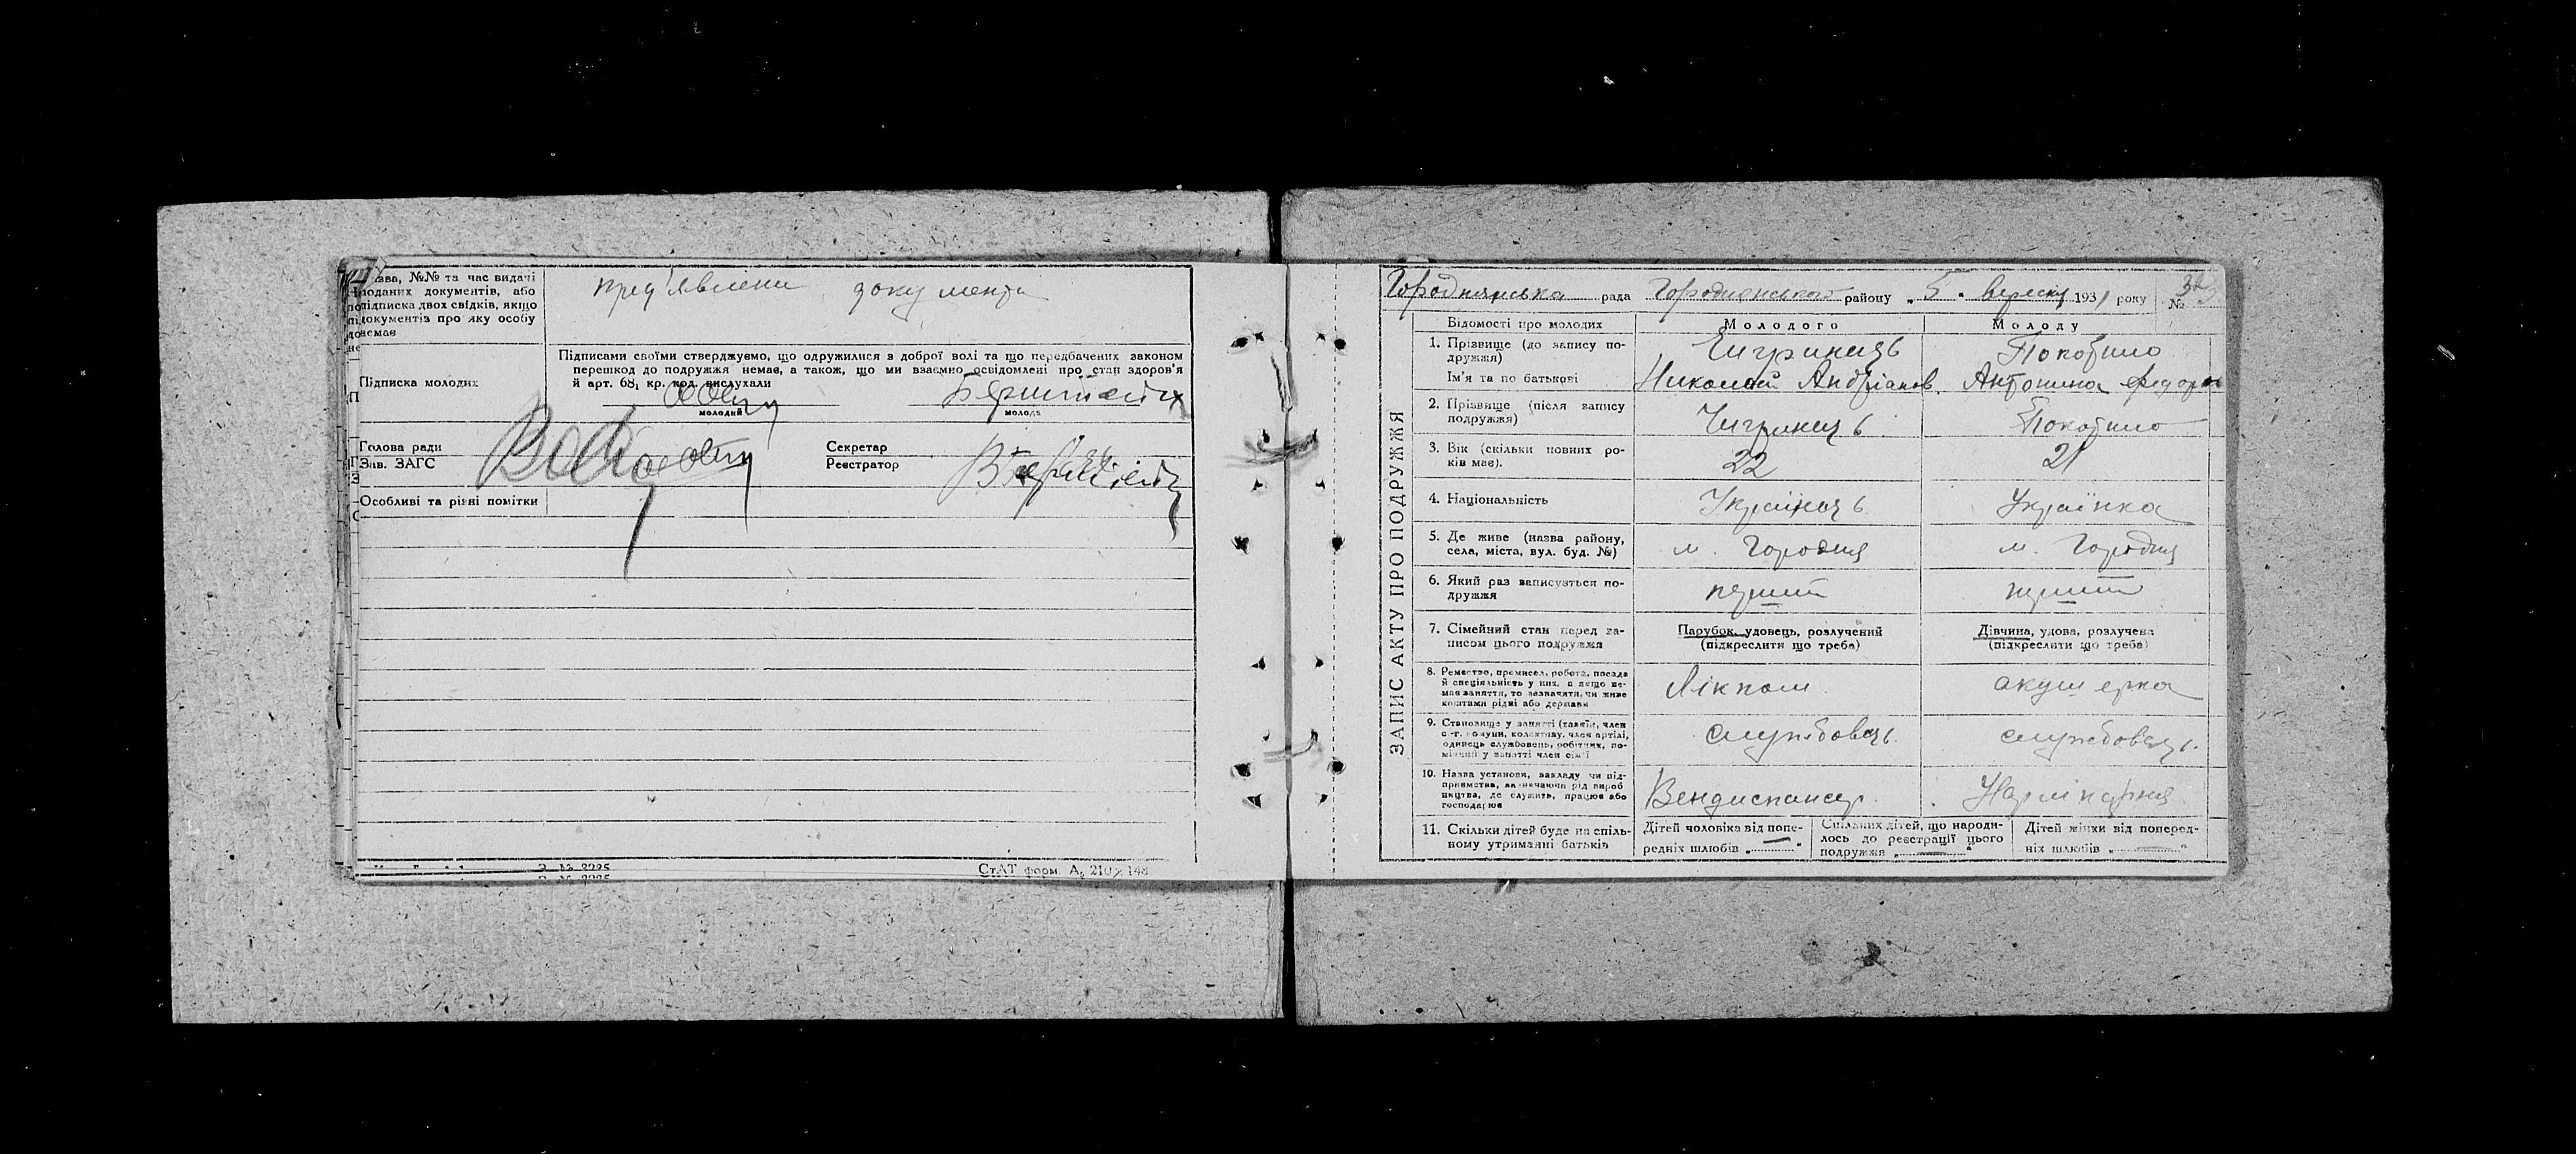 зва, №№ та час видачі
поданих документів, або
підписка двох свідків, якщо
документів про яку особу
немає
пред'явлени документи
Підписами своїми стверджуємо, що одружилися з доброї волі та що передбачених законом
перешкод до подружжя немає, а також, що ми взаємно освідомлені про стан здоров'я
й арт. 68₁ кр. код. вислухали
Підписка молодих
молодий
молода
Голова ради
Зав. ЗАГС
Секретар
Реєстратор
Особливі та різні помітки
СтАТ форм. А₂ 210×148
Городнянська рада Городнянського району „5" вересня 1931 року №
ЗАПИС АКТУ ПРО ПОДРУЖЖЯ
Відомості про молодих
Молодого
Молоду
1. Прізвище (до запису по-
дружжя)
Чигринець
Покотило
Ім'я та по батькові
Николай Андріанов.
Антонина Федоров
2. Прізвище (після запису
подружжя)
Чигринець
Покотило
3. Вік (скільки повних ро-
ків має).
22
21
4. Національність
Українець
Українка
5. Де живе (назва району,
села, міста, вул. буд. №)
м. Городня
м. Городня
6. Який раз записується по-
дружжя
перший
перший
7. Сімейний стан перед за-
писом цього подружжя
Парубок, удовець, розлучений
(підкреслити що треба)
Дівчина, удова, розлучена
(підкреслити що треба)
8. Ремество, промисел, робота, посада
й спеціяльність у них, а якщо не-
має заняття, то зазначити, чи живе
коштами рідні або держави
Лікпом
акушерка
9. Становище у занятті (хазяїн, член
с.-г. комуни, колективу, член артілі,
одинець службовець, робітник, по-
мічний у занятті член сім'ї
службовець
службовець.
10. Назва установи, закладу чи під-
приємства, зазначаючи рід вироб
ництва, де служить, працює або
господарює
Вендиспансер.
11. Скільки дітей буде на спіль-
ному утриманні батьків
Дітей чоловіка від попе-
редніх шлюбів „ — "
Спільних дітей, що народи-
лось до реєстрації цього
подружжя „ — "
Дітей жінки від поперед-
ніх шлюбів „ — "